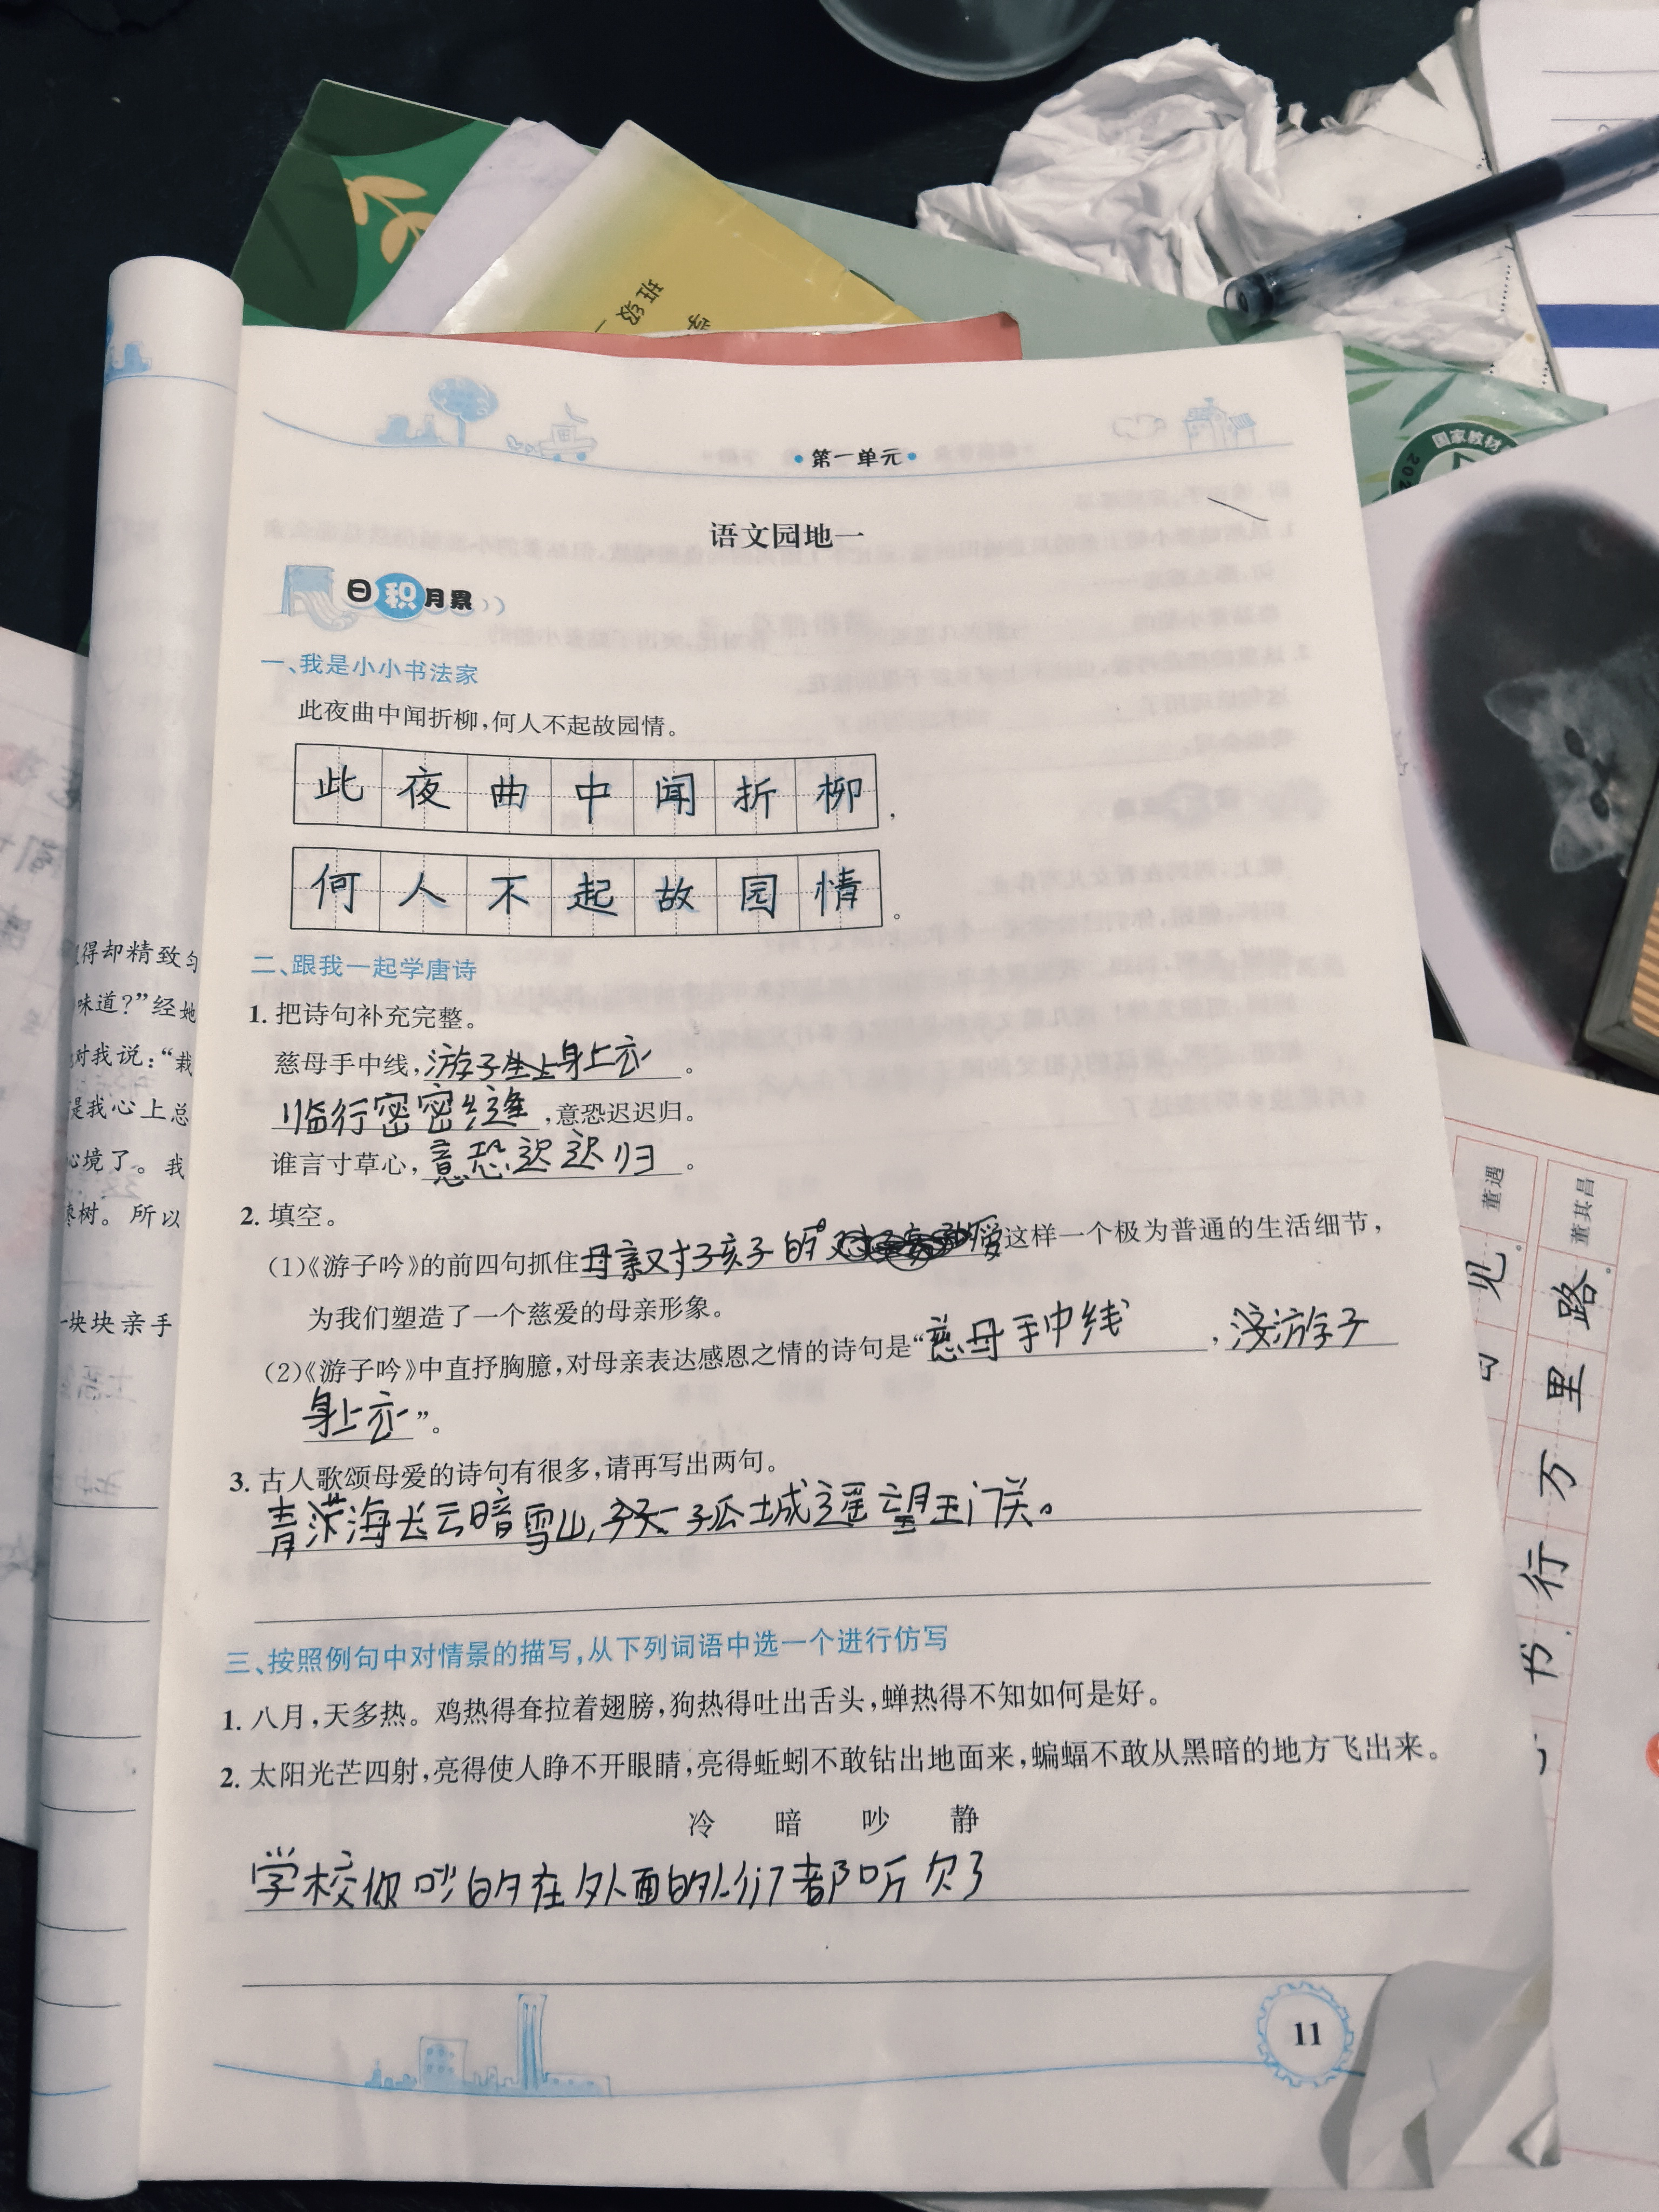 班级
学
国家教材
202
·第一单元·
语文园地一
日积月累
一、我是小小书法家
此夜曲中闻折柳,何人不起故园情。
此夜曲中闻折柳,
何人不起故园情。
二、跟我一起学唐诗
1. 把诗句补充完整。
慈母手中线,游子身上衣。
临行密密缝,意恐迟迟归。
谁言寸草心,意恐迟迟归。
2. 填空。
(1)《游子吟》的前四句抓住母亲对孩子的爱这样一个极为普通的生活细节,
为我们塑造了一个慈爱的母亲形象。
(2)《游子吟》中直抒胸臆,对母亲表达感恩之情的诗句是“慈母手中线,游子
身上衣”。
3. 古人歌颂母爱的诗句有很多,请再写出两句。
青海长云暗雪山,孤城遥望玉门关。
三、按照例句中对情景的描写,从下列词语中选一个进行仿写
1. 八月,天多热。鸡热得耷拉着翅膀,狗热得吐出舌头,蝉热得不知如何是好。
2. 太阳光芒四射,亮得使人睁不开眼睛,亮得蚯蚓不敢钻出地面来,蝙蝠不敢从黑暗的地方飞出来。
冷 暗 吵 静
学校你吵的在外面的人们都听欠了
11
得却精致匀
味道?”经她
对我说:“栽
是我心上总
心境了。我
枣树。所以
一块块亲手
董遇
见。
董其昌
路。
里
万
行
书